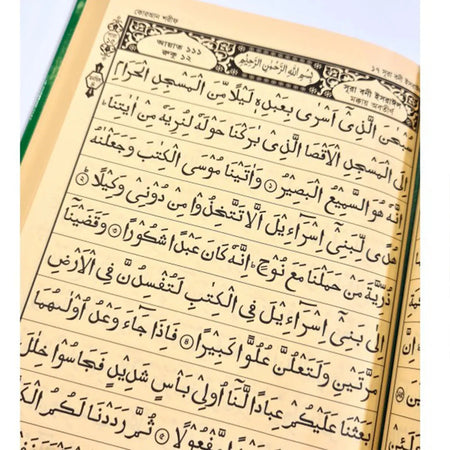 কোরআন শরীফ
১৭ সূরা বনী ইসরাঈল
আয়াত ১১১
রুকু ১২
بِسْمِ اللّٰهِ الرَّحْمٰنِ الرَّحِيْمِ
সূরা বনী ইসরাঈল
মক্কায় অবতীর্ণ
سُبْحٰنَ الَّذِيْٓ اَسْرٰى بِعَبْدِهٖ لَيْلًا مِّنَ الْمَسْجِدِ الْحَرَامِ
اِلَى الْمَسْجِدِ الْاَقْصَا الَّذِيْ بٰرَكْنَا حَوْلَهٗ لِنُرِيَهٗ مِنْ اٰيٰتِنَا ؕ
اِنَّهٗ هُوَ السَّمِيْعُ الْبَصِيْرُ ① وَاٰتَيْنَا مُوْسَى الْكِتٰبَ وَجَعَلْنٰهُ
هُدًى لِّبَنِيْٓ اِسْرَآءِيْلَ اَلَّا تَتَّخِذُوْا مِنْ دُوْنِيْ وَكِيْلًا ؕ ②
ذُرِّيَّةَ مَنْ حَمَلْنَا مَعَ نُوْحٍ ؕ اِنَّهٗ كَانَ عَبْدًا شَكُوْرًا ③ وَقَضَيْنَآ
اِلٰى بَنِيْٓ اِسْرَآءِيْلَ فِي الْكِتٰبِ لَتُفْسِدُنَّ فِي الْاَرْضِ
مَرَّتَيْنِ وَلَتَعْلُنَّ عُلُوًّا كَبِيْرًا ④ فَاِذَا جَآءَ وَعْدُ اُوْلٰىهُمَا
بَعَثْنَا عَلَيْكُمْ عِبَادًا لَّنَآ اُولِيْ بَاْسٍ شَدِيْدٍ فَجَاسُوْا خِلٰلَ
مَّفْعُوْلًا ⑤ ثُمَّ رَدَدْنَا لَكُمُ